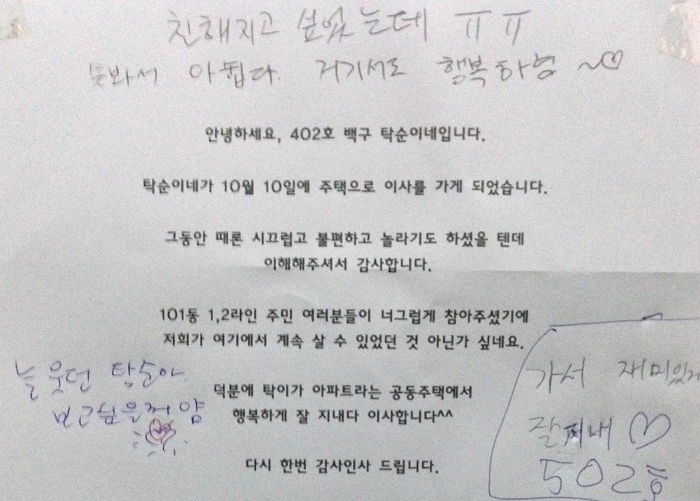 친해지고 싶었는데 ㅠㅠ
못봐서 아쉽다. 거기서도 행복하렴 ~♡
안녕하세요, 402호 백구 탁순이네입니다.
탁순이네가 10월 10일에 주택으로 이사를 가게 되었습니다.
그동안 때론 시끄럽고 불편하고 놀라기도 하셨을 텐데
이해해주셔서 감사합니다.
101동 1,2라인 주민 여러분들이 너그럽게 참아주셨기에
저희가 여기에서 계속 살 수 있었던 것 아닌가 싶네요.
덕분에 탁이가 아파트라는 공동주택에서
행복하게 잘 지내다 이사합니다^^
다시 한번 감사인사 드립니다.
늘 웃던 탁순아
보고싶을거
가서 재미있게
잘지내 ♡
502호